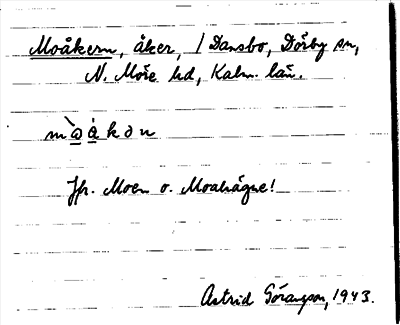 Moåkern, åker, / Dansbo, Dörby sn,
N. Möre hd, Kalm. län.
mὼạ́kən
Jfr. Moen o. Moahägne!
Astrid Göransson, 1943.